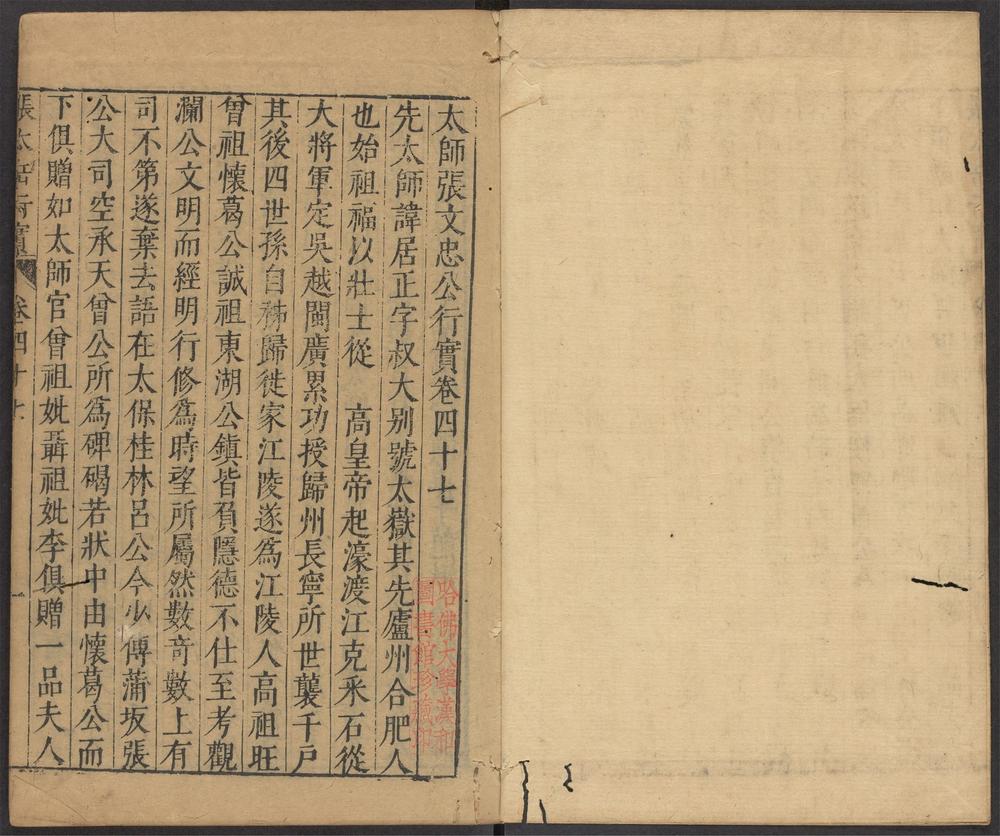 太師張文忠公行實卷四十七
先太師諱居正字叔大别號太嶽其先廬州合肥人
也始祖福以壯士從　高皇帝起濠渡江克采石從
大將軍定吳越閩廣累功授歸州長寧所世襲千戶
其後四世孫自秭歸徙家江陵遂爲江陵人高祖旺
曾祖懷葛公誠祖東湖公鎮皆負隱德不仕至考觀
瀾公文明而經明行修爲時望所屬然數竒數上有
司不第遂棄去語在太保桂林呂公今少傅蒲坂張
公大司空承天曾公所爲碑碣若狀中由懷葛公而
下俱贈如太師官曾祖妣聶祖妣李俱贈一品夫人
張太岳行實
卷四十七
一
哈佛大學漢和
圖書館珍藏印